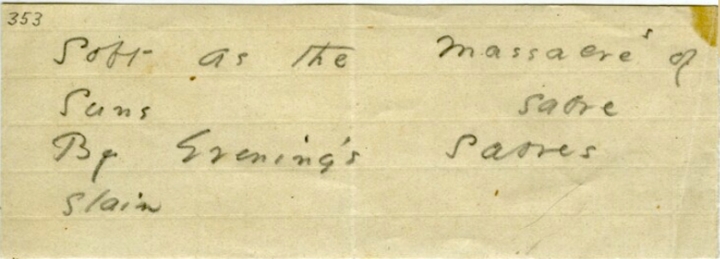 353
Soft as the Massacre s of
Suns sabre
By Evening's Sabres
slain